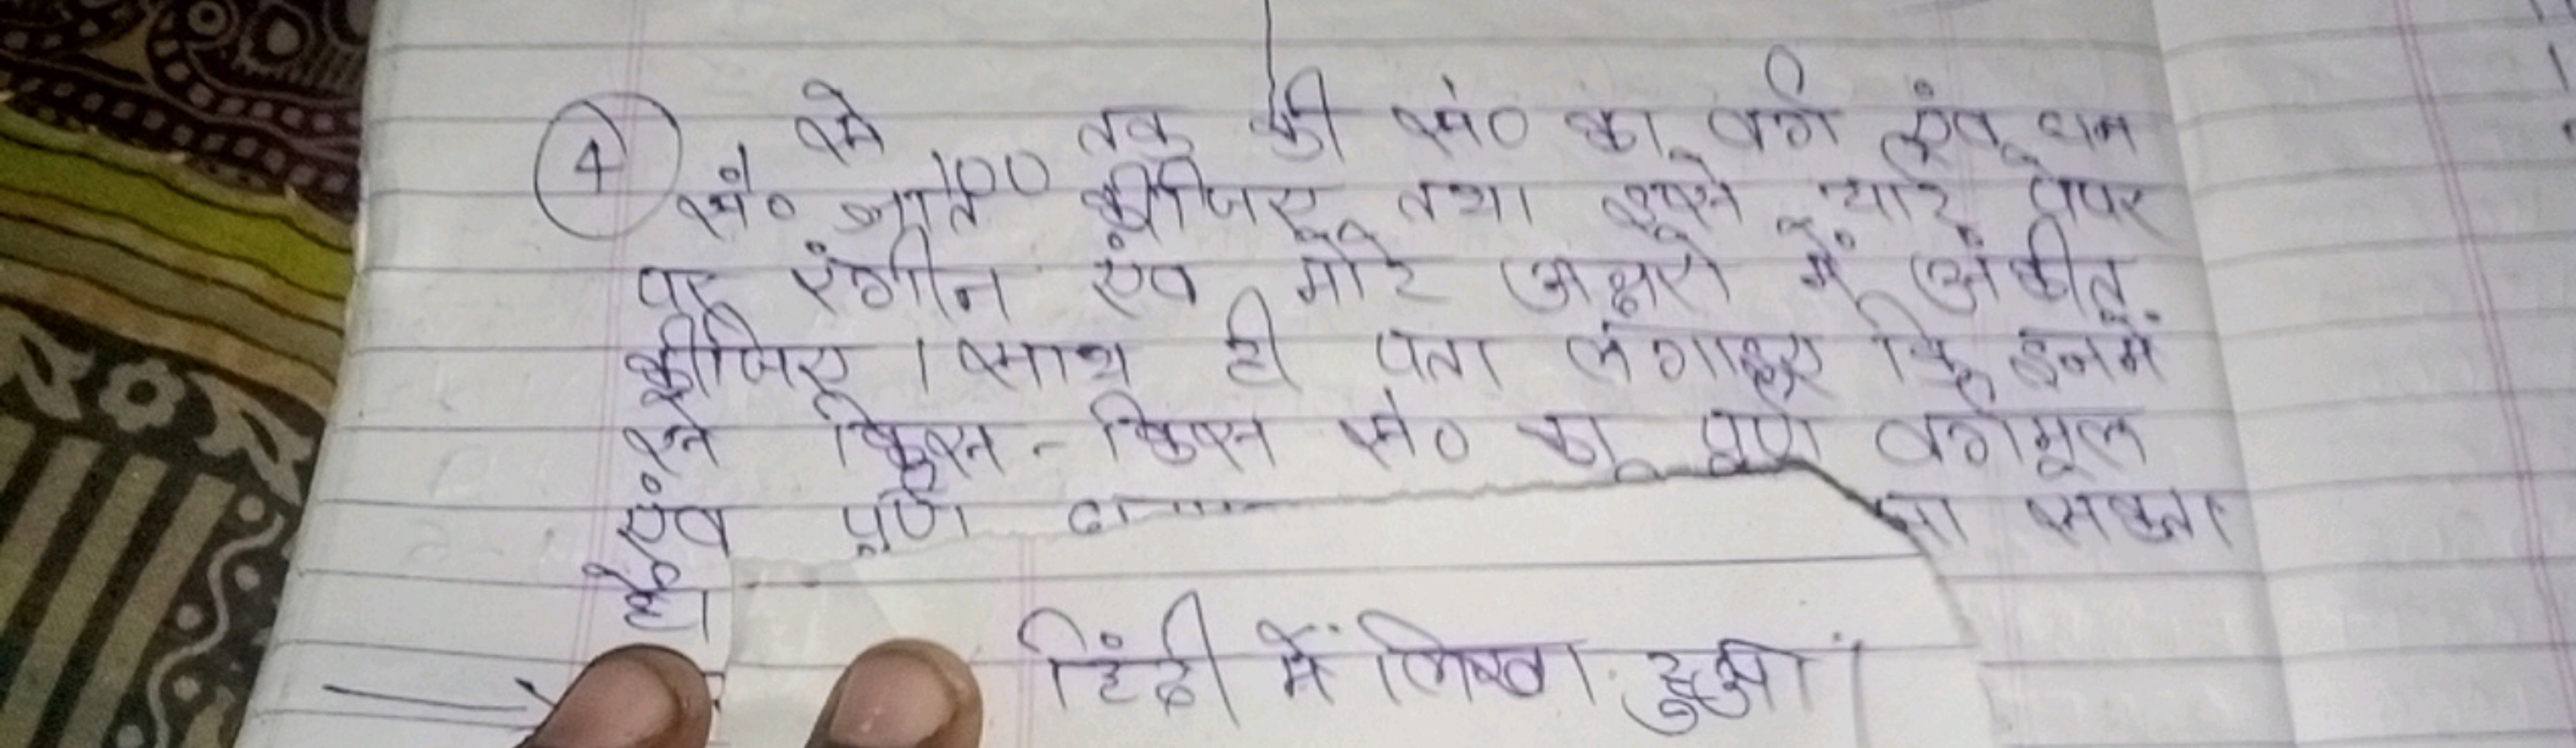 ④ से 100 तक की सं० का वर्ग एंव घन
सं० ज्ञात कीजिए तथा इसे चार्ट पेपर
पर रंगीन एंव मोटे अक्षरो में अंकीत
कीजिए । साथ ही पता लगाइए कि इनमें
से किस - किस सं० का पूर्ण वर्गमूल
एंव पूर्ण जा सकता
है।
हिंदी में लिखा हुआ।